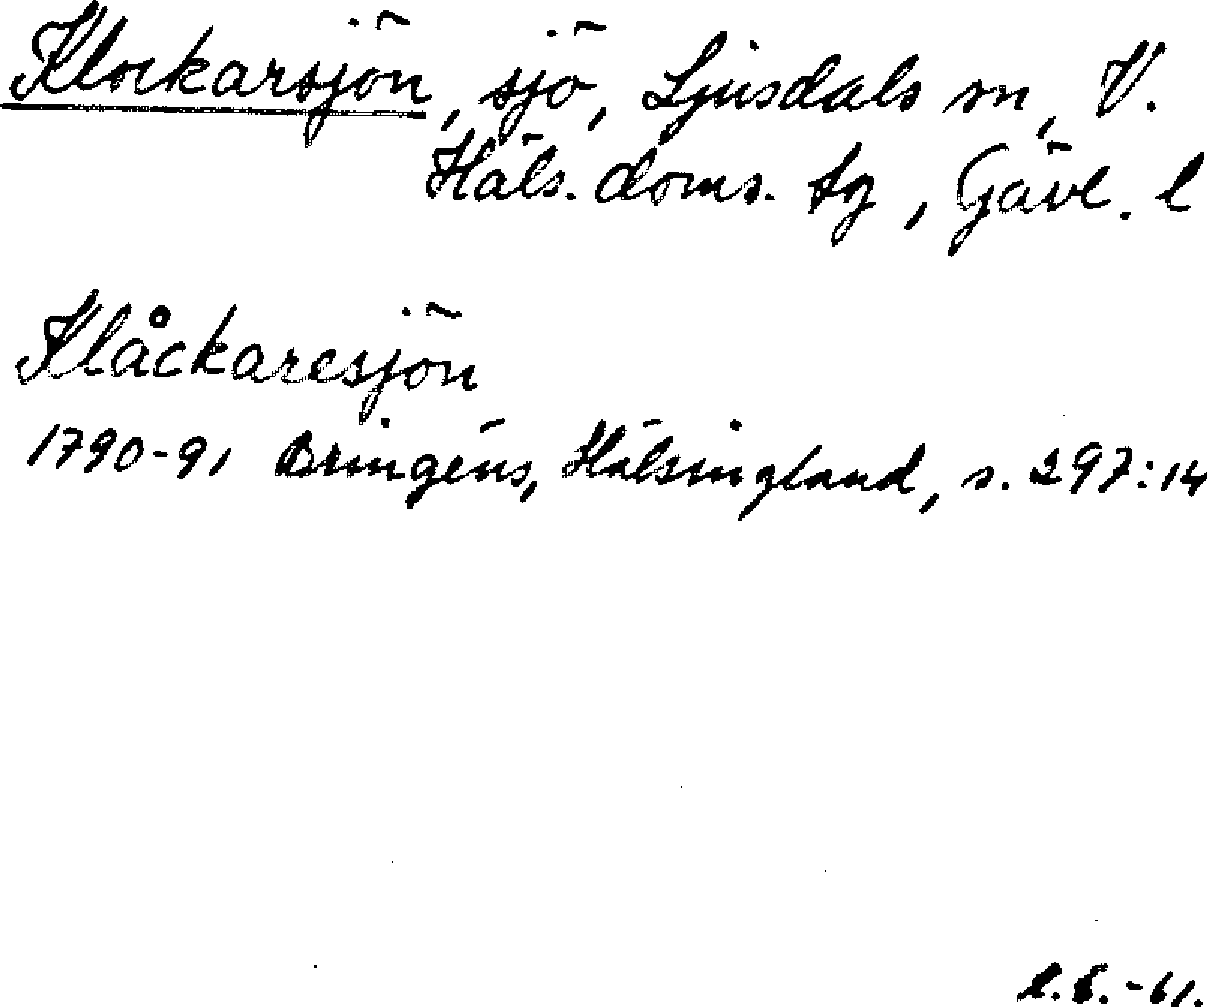 Klockarsjön, sjö, Ljusdals sn, V.
Häls. doms. tg, Gävl. l
Klåckaresjön
1790-91 Bringéus, Hälsingland, s. 297:14
-61.